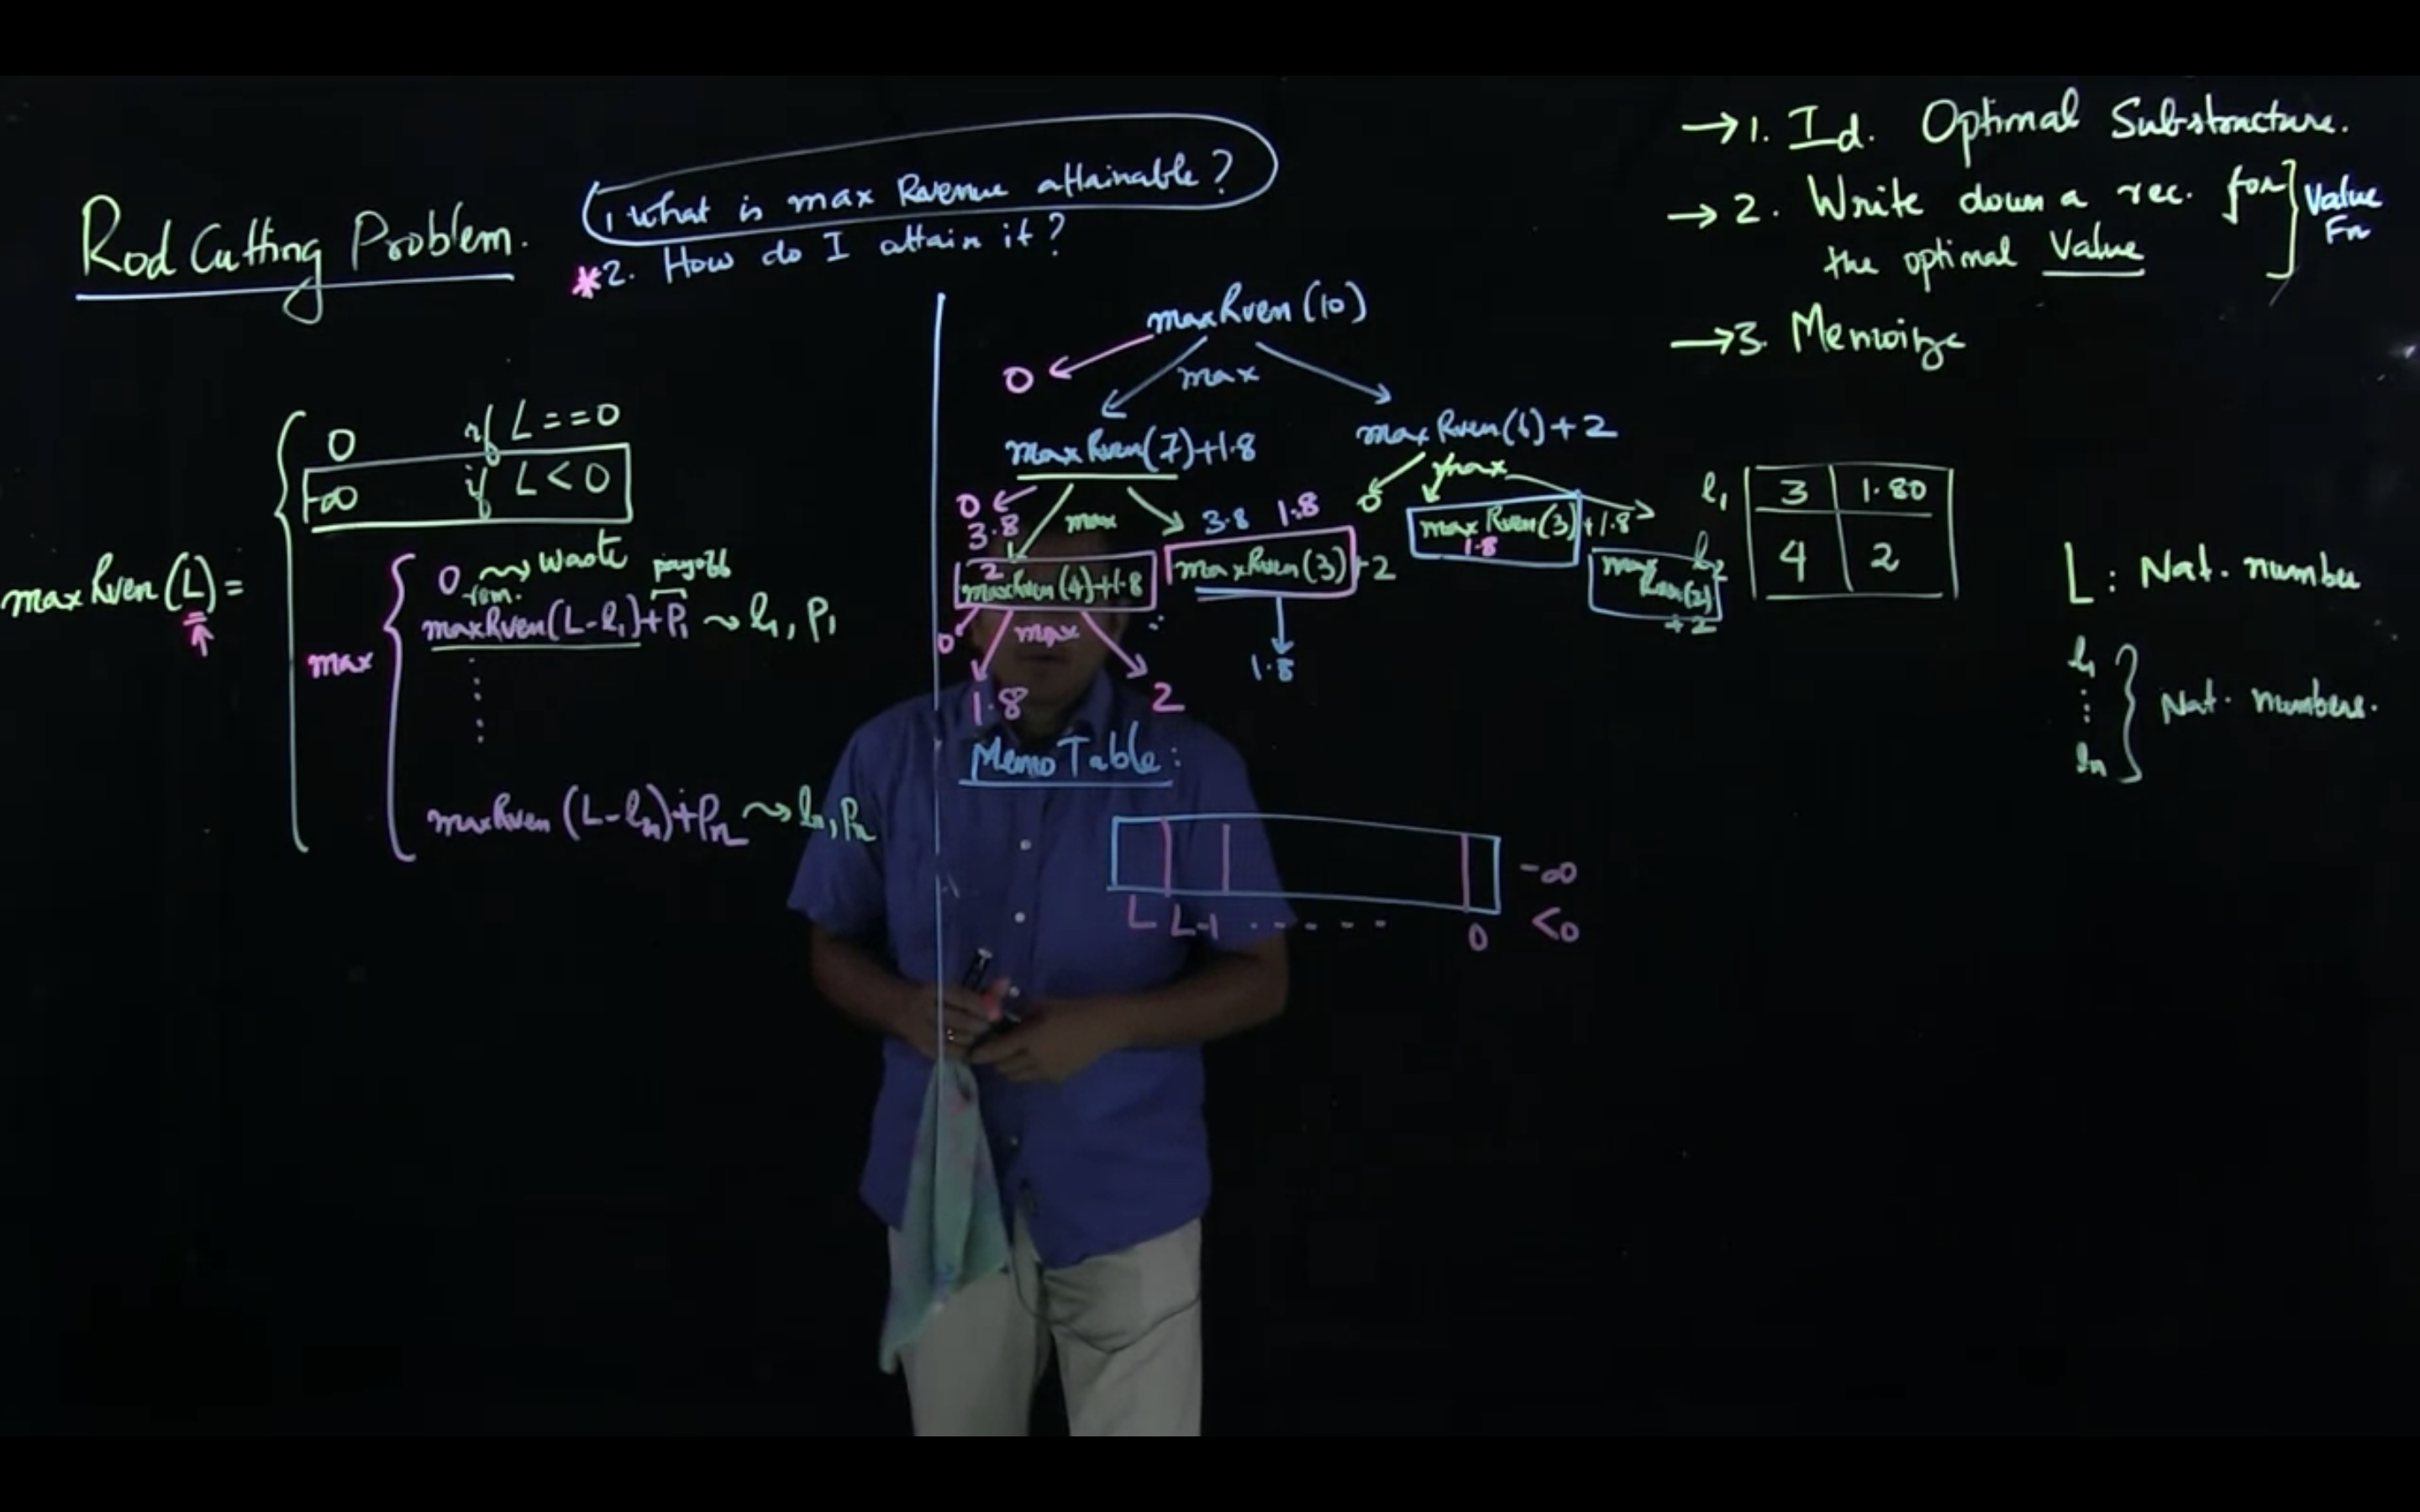 Rod Cutting Problem.
1 What is max Revenue attainable?
*2. How do I attain it?
→1. Id. Optimal Substructure.
→2. Write down a rec. for
the optimal Value
Value
Fn
→3. Memoize
maxRven(L)=
0 if L==0
-∞ if L<0
max
0 ⇝ waste
rem. payoff
maxRven(L-l₁)+P₁ ~ l₁, P₁
maxRven(L-lₙ)+Pₙ ~ lₙ, Pₙ
maxRven(10)
0 max
maxRven(7)+1.8 maxRven(6)+2
0 max 3.8 1.8 0 max
3.8
2
maxRven(4)+1.8 maxRven(3)+2 maxRven(3)+1.8
1.8
maxRven(2)
+2
0 max
1.8 2 1.8
l₁ 3 1.80
l₂ 4 2
L: Nat. number
l₁
⋮
lₙ
Nat. numbers.
Memo Table:
-∞
L L-1 ------ 0 <0